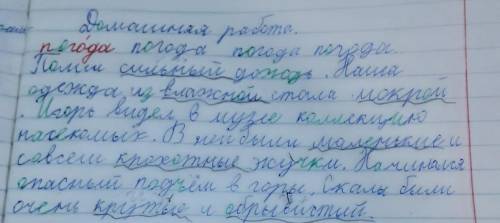 Домашняя работа.
погода погода погода погода.
Полил сильный дождь. Наша
одежда из влажной стала мокрой
. Игорь видел в музее коллекцию
насекомых. В ней были маленькие и
совсем крохотные жучки. Начинался
опасный подъём в горы. Скалы были
очень крутые и обрывистий.